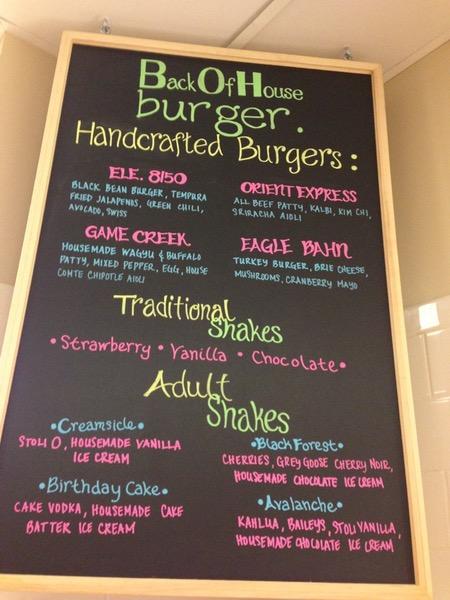 Back Of House
burger.
Handcrafted Burgers:
ELE. 8150
BLACK BEAN BURGER, TEMPURA
FRIED JALAPENOS, GREEN CHILI,
AVOCADO, SWISS
ORIENT EXPRESS
ALL BEEF PATTY, KALBI, KIM CHI,
SRIRACHA AIOLI
GAME CREEK
HOUSEMADE WAGYU & BUFFALO
PATTY, MIXED PEPPER, EGG, HOUSE
COMTE CHIPOTLE AIOLI
EAGLE BAHN
TURKEY BURGER, BRIE CHEESE,
MUSHROOMS, CRANBERRY MAYO
Traditional
Shakes
• Strawberry • Vanilla • Chocolate •
Adult
Shakes
•Creamsicle•
STOLI O, HOUSEMADE VANILLA
ICE CREAM
•Black Forest•
CHERRIES, GREY GOOSE CHERRY NOIR,
HOUSEMADE CHOCOLATE ICE CREAM
•Birthday Cake•
CAKE VODKA, HOUSEMADE CAKE
BATTER ICE CREAM
•Avalanche•
KAHLUA, BAILEYS, STOLI VANILLA,
HOUSEMADE CHOCOLATE ICE CREAM